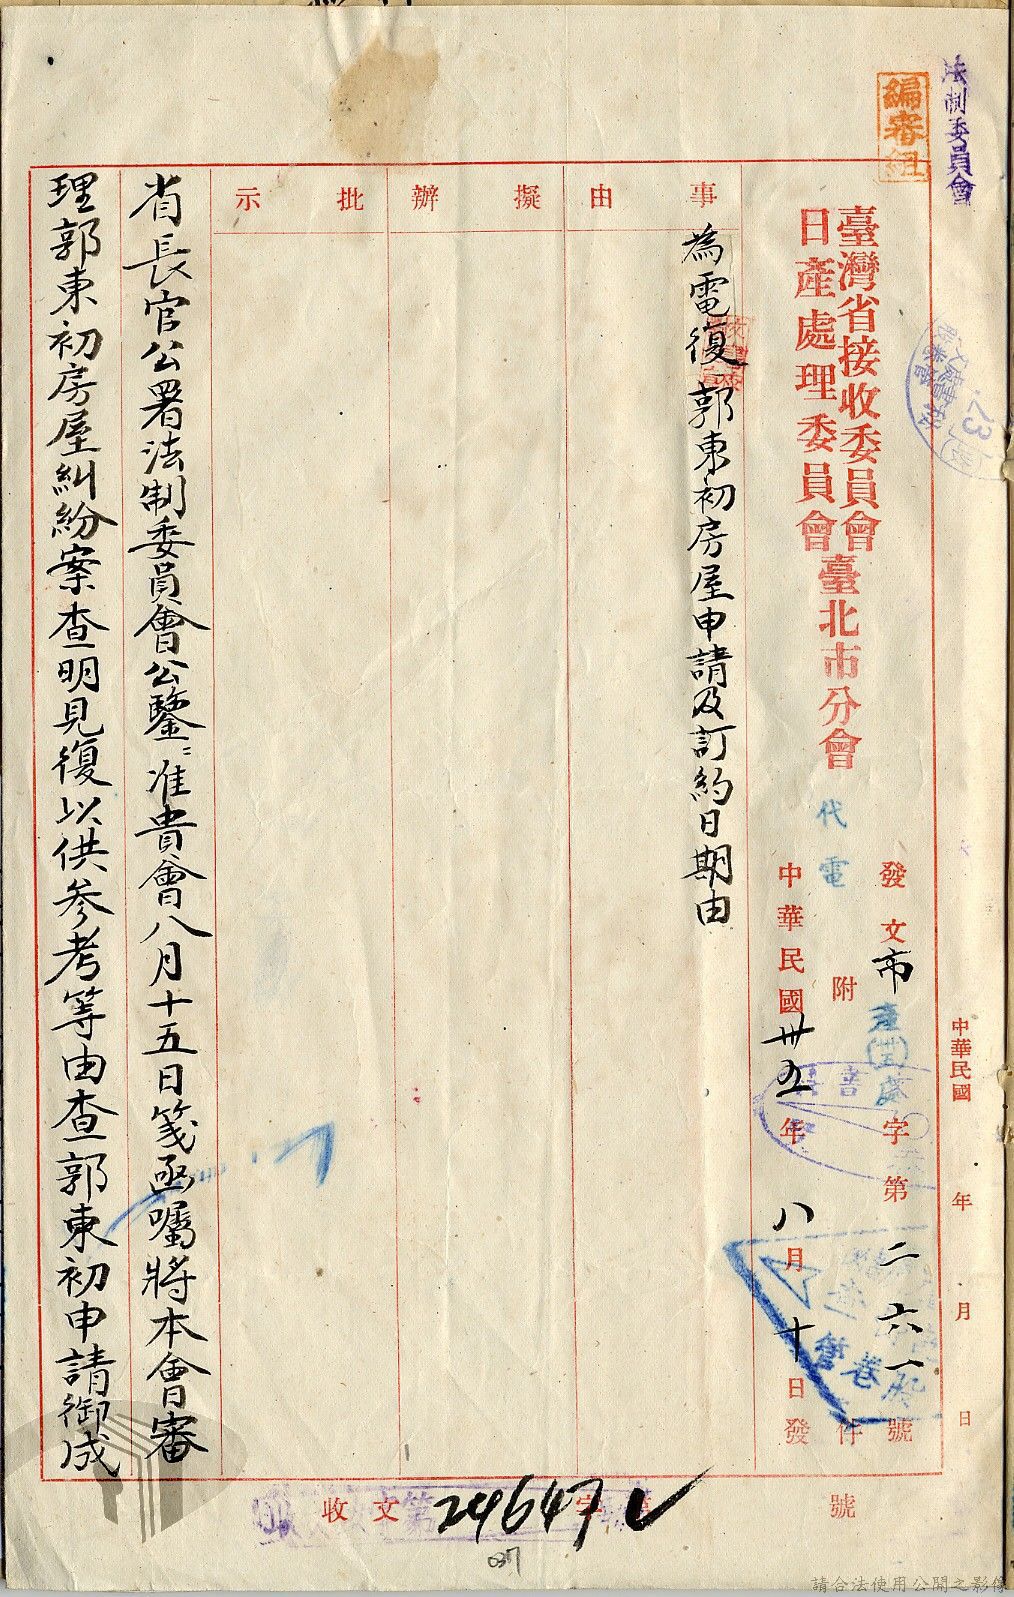 法制委員會
編審組
中華民國 年 月 日
臺灣省接收委員會
日產處理委員會
臺北市分會
代電
發文市產(卅五)處字第二六一號
附 件
中華民國卅五年八月十日發
管卷
事由
擬辦
批示
為電復郭東初房屋申請及訂約日期由
省長官公署法制委員會公鑒:准貴會八月十五日箋函囑將本會審
理郭東初房屋糾紛案查明見復以供參考等由查郭東初申請御成
收文 字第24647號
037
請合法使用公開之影像